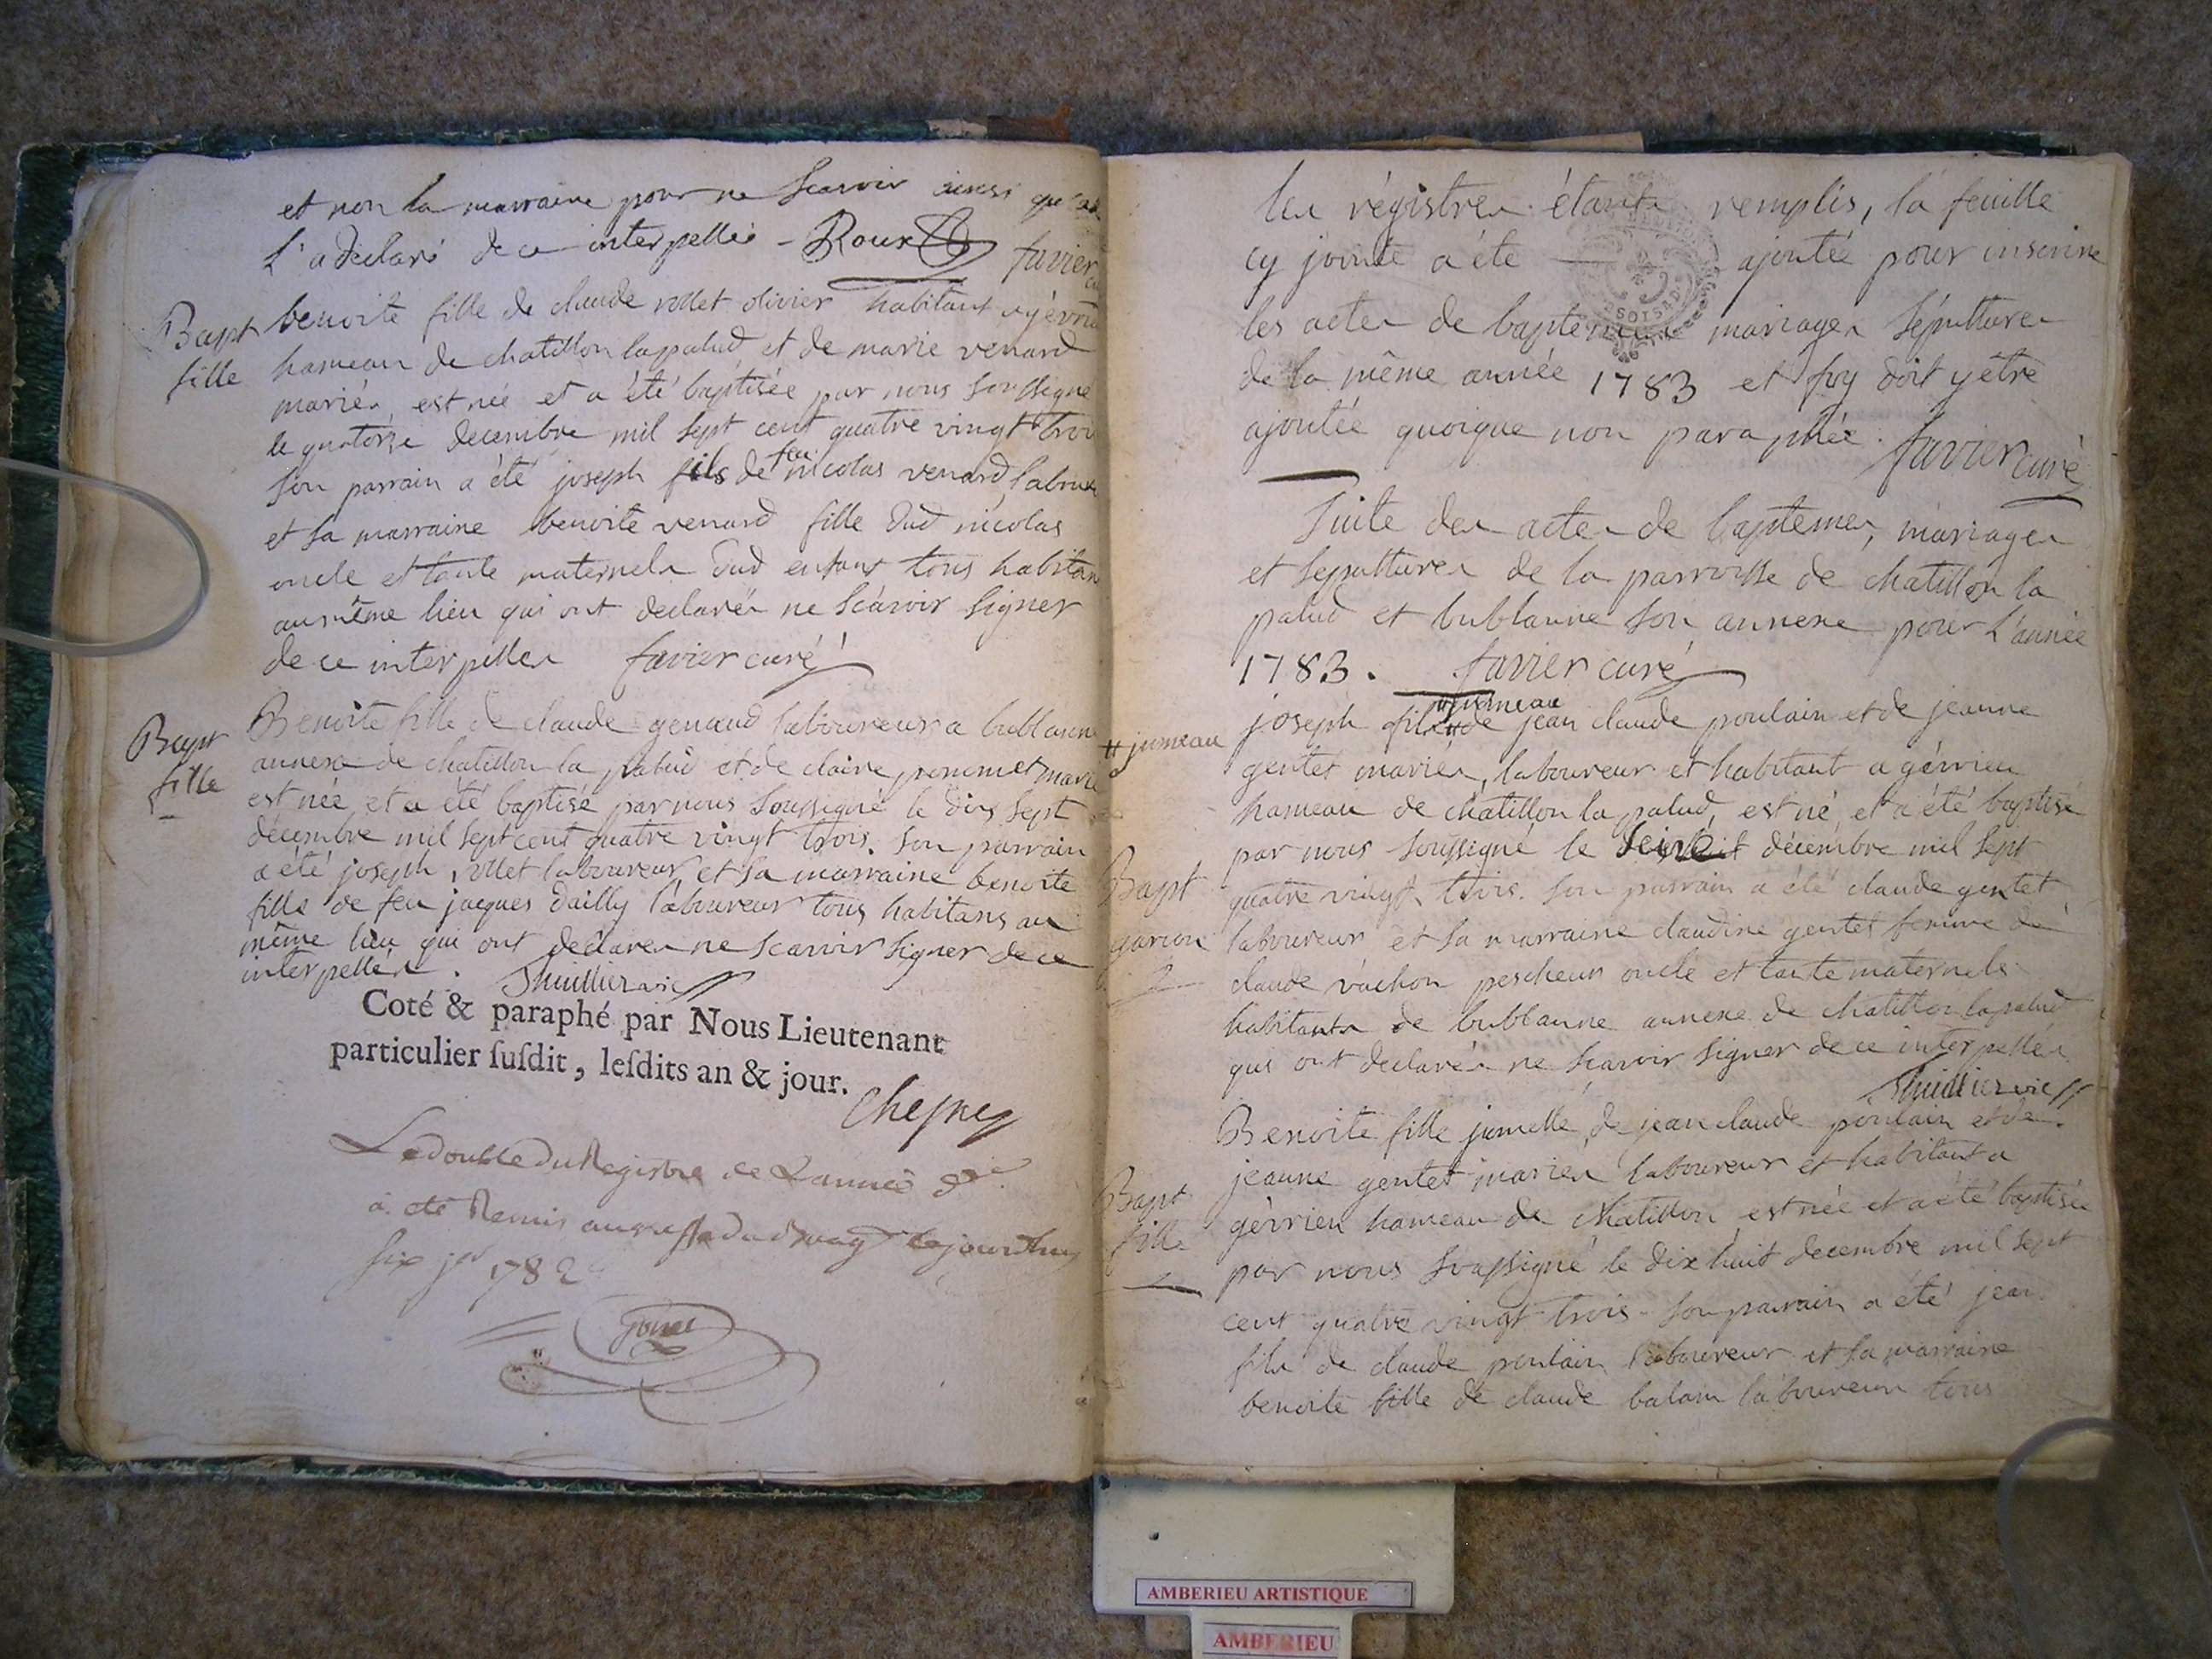 et non la marraine pour ne scavoir ainsi
l'a declaré de ce interpellée - Roux favier
Bapt
fille
benoite fille de claude rollet olivier habitant a
hameau de chatillon lapalud et de marie venard
mariés, est née et a été baptisée par nous soussigné
le quatorze decembre mil sept cent quatre vingt trois
son parrain a été joseph fils de feu nicolas venard
et sa marraine benoite venard fille dud nicolas
oncle et tante maternels dud enfant tous habitan
au même lieu qui ont declarés ne scavoir signer
de ce interpellés favier curé
Bapt
fille
Benoite fille de claude genaud laboureur a bublanne
annexe de chatillon la palud et de claire ponomet marié
est née et a été baptisé par nous soussigné le dix sept
décembre mil sept cent quatre vingt trois. son parrain
a été joseph rollet laboureur et sa marraine benoite
fille de feu jacques dailly laboureur tous habitans au
même lieu qui ont déclarer ne scavoir signer de ce
interpellés. Thuillier vic
Coté & paraphé par Nous Lieutenant
particulier susdit, lesdits an & jour.
Le double du Registre de L'année
a été Remis au greffe du le jourdhuy
six jer 1782
les régistres étants remplis, la feuille
cy jointe a été ajoutée pour inscrire
les actes de baptemes mariages sépultures
de la même année 1783 et foy doit y être
ajoutée quoique non paraphée. favier curé
Suite des actes de baptemes, mariages
et sepultures de la parroisse de chatillon la
palud et bublanne son annexe pour l'année
1783. favier curé
# jumeau
Bapt
garçon
joseph fils # jumeau de jean claude poulain et de jeanne
gentet mariés, laboureur et habitant a gévrieu
hameau de châtillon la palud, est né et a été baptisé
par nous soussigné le décembre mil sept
quatre vingt trois. son parrain a été claude gentet
laboureur et sa marraine claudine gentet femme de
claude vachon pescheur oncle et tante maternels
habitants de bublanne annexe de chatillon lapalud
qui ont declarés ne scavoir signer de ce interpellés
Thuillier vic
Bapt
fille
Benoite fille jumelle, de jean claude poulain et de
jeanne gentet mariés laboureur et habitant a
gévrieu hameau de chatillon est née et a été baptisée
par nous soussigné le dix huit decembre mil sept
cent quatre vingt trois - son parrain a été jean
fils de claude poulain laboureur et sa marraine
benoite fille de claude balain laboureur tous
AMBERIEU ARTISTIQUE
AMBERIEU